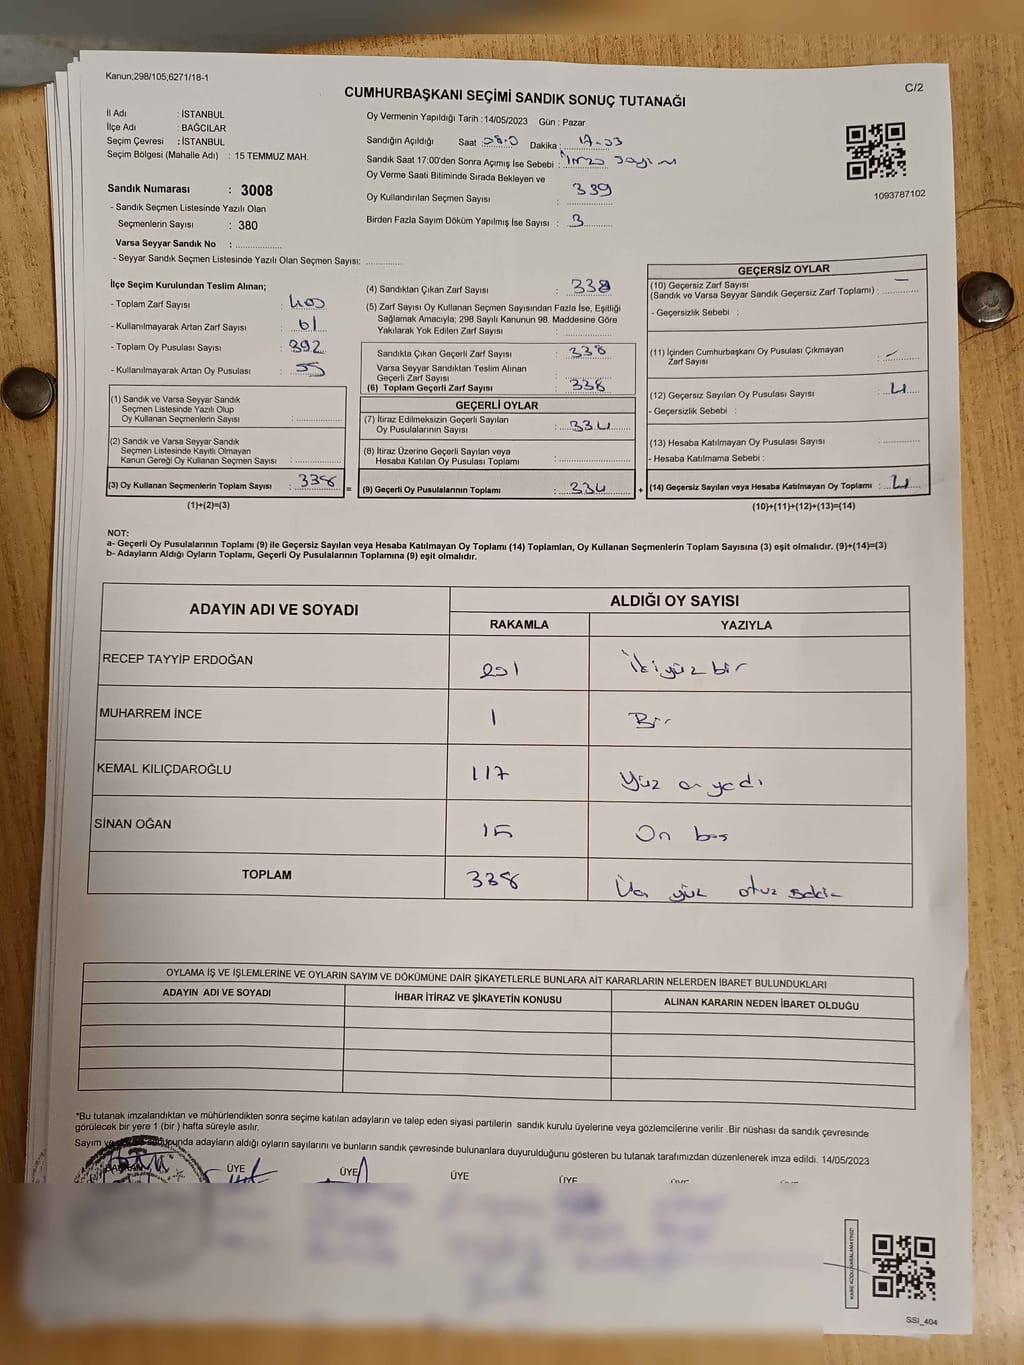 Kanun;298/105;6271/18-1
C/2
CUMHURBAŞKANI SEÇİMİ SANDIK SONUÇ TUTANAĞI
İl Adı : İSTANBUL
İlçe Adı : BAĞCILAR
Seçim Çevresi : İSTANBUL
Seçim Bölgesi (Mahalle Adı) : 15 TEMMUZ MAH.
Oy Vermenin Yapıldığı Tarih : 14/05/2023 Gün : Pazar
Sandığın Açıldığı Saat : Dakika :
Sandık Saat 17:00'den Sonra Açımış İse Sebebi :
Oy Verme Saati Bitiminde Sırada Bekleyen ve
Oy Kullandırılan Seçmen Sayısı : 339
Birden Fazla Sayım Döküm Yapılmış İse Sayısı : 3
1093787102
Sandık Numarası : 3008
- Sandık Seçmen Listesinde Yazılı Olan
Seçmenlerin Sayısı : 380
Varsa Seyyar Sandık No :
- Seyyar Sandık Seçmen Listesinde Yazılı Olan Seçmen Sayısı:
İlçe Seçim Kurulundan Teslim Alınan;
- Toplam Zarf Sayısı : 400
- Kullanılmayarak Artan Zarf Sayısı : 61
- Toplam Oy Pusulası Sayısı : 392
- Kullanılmayarak Artan Oy Pusulası : 55
(1) Sandık ve Varsa Seyyar Sandık
Seçmen Listesinde Yazılı Olup
Oy Kullanan Seçmenlerin Sayısı :
(2) Sandık ve Varsa Seyyar Sandık
Seçmen Listesinde Kayıtlı Olmayan
Kanun Gereği Oy Kullanan Seçmen Sayısı :
(3) Oy Kullanan Seçmenlerin Toplam Sayısı : 338 =
(1)+(2)=(3)
(4) Sandıktan Çıkan Zarf Sayısı : 338
(5) Zarf Sayısı Oy Kullanan Seçmen Sayısından Fazla İse, Eşitliği
Sağlamak Amacıyla; 298 Sayılı Kanunun 98. Maddesine Göre
Yakılarak Yok Edilen Zarf Sayısı :
Sandıkta Çıkan Geçerli Zarf Sayısı : 338
Varsa Seyyar Sandıktan Teslim Alınan
Geçerli Zarf Sayısı :
(6) Toplam Geçerli Zarf Sayısı : 338
GEÇERLİ OYLAR
(7) İtiraz Edilmeksizin Geçerli Sayılan
Oy Pusulalarının Sayısı : 334
(8) İtiraz Üzerine Geçerli Sayılan veya
Hesaba Katılan Oy Pusulası Toplamı :
(9) Geçerli Oy Pusulalarının Toplamı : 334 +
GEÇERSİZ OYLAR
(10) Geçersiz Zarf Sayısı
(Sandık ve Varsa Seyyar Sandık Geçersiz Zarf Toplamı) : —
- Geçersizlik Sebebi :
(11) İçinden Cumhurbaşkanı Oy Pusulası Çıkmayan
Zarf Sayısı : —
(12) Geçersiz Sayılan Oy Pusulası Sayısı : 4
- Geçersizlik Sebebi :
(13) Hesaba Katılmayan Oy Pusulası Sayısı :
- Hesaba Katılmama Sebebi :
(14) Geçersiz Sayılan veya Hesaba Katılmayan Oy Toplamı : 4
(10)+(11)+(12)+(13)=(14)
NOT:
a- Geçerli Oy Pusulalarının Toplamı (9) ile Geçersiz Sayılan veya Hesaba Katılmayan Oy Toplamı (14) Toplamları, Oy Kullanan Seçmenlerin Toplam Sayısına (3) eşit olmalıdır. (9)+(14)=(3)
b- Adayların Aldığı Oyların Toplamı, Geçerli Oy Pusulalarının Toplamına (9) eşit olmalıdır.
ADAYIN ADI VE SOYADI
ALDIĞI OY SAYISI
RAKAMLA YAZIYLA
RECEP TAYYİP ERDOĞAN 201 İkiyüz bir
MUHARREM İNCE 1 Bir
KEMAL KILIÇDAROĞLU 117 Yüz on yedi
SİNAN OĞAN 15 On beş
TOPLAM 338 Üç yüz otuz sekiz
OYLAMA İŞ VE İŞLEMLERİNE VE OYLARIN SAYIM VE DÖKÜMÜNE DAİR ŞİKAYETLERLE BUNLARA AİT KARARLARIN NELERDEN İBARET BULUNDUKLARI
ADAYIN ADI VE SOYADI İHBAR İTİRAZ VE ŞİKAYETİN KONUSU ALINAN KARARIN NEDEN İBARET OLDUĞU
*Bu tutanak imzalandıktan ve mühürlendikten sonra seçime katılan adayların ve talep eden siyasi partilerin sandık kurulu üyelerine veya gözlemcilerine verilir .Bir nüshası da sandık çevresinde
görülecek bir yere 1 (bir ) hafta süreyle asılır.
Sayım ve adayların aldığı oyların sayılarını ve bunların sandık çevresinde bulunanlara duyurulduğunu gösteren bu tutanak tarafımızdan düzenlenerek imza edildi. 14/05/2023
BAŞKAN ÜYE ÜYE ÜYE ÜYE
KARE KODU KARALAMAYINIZ!
SSI_404